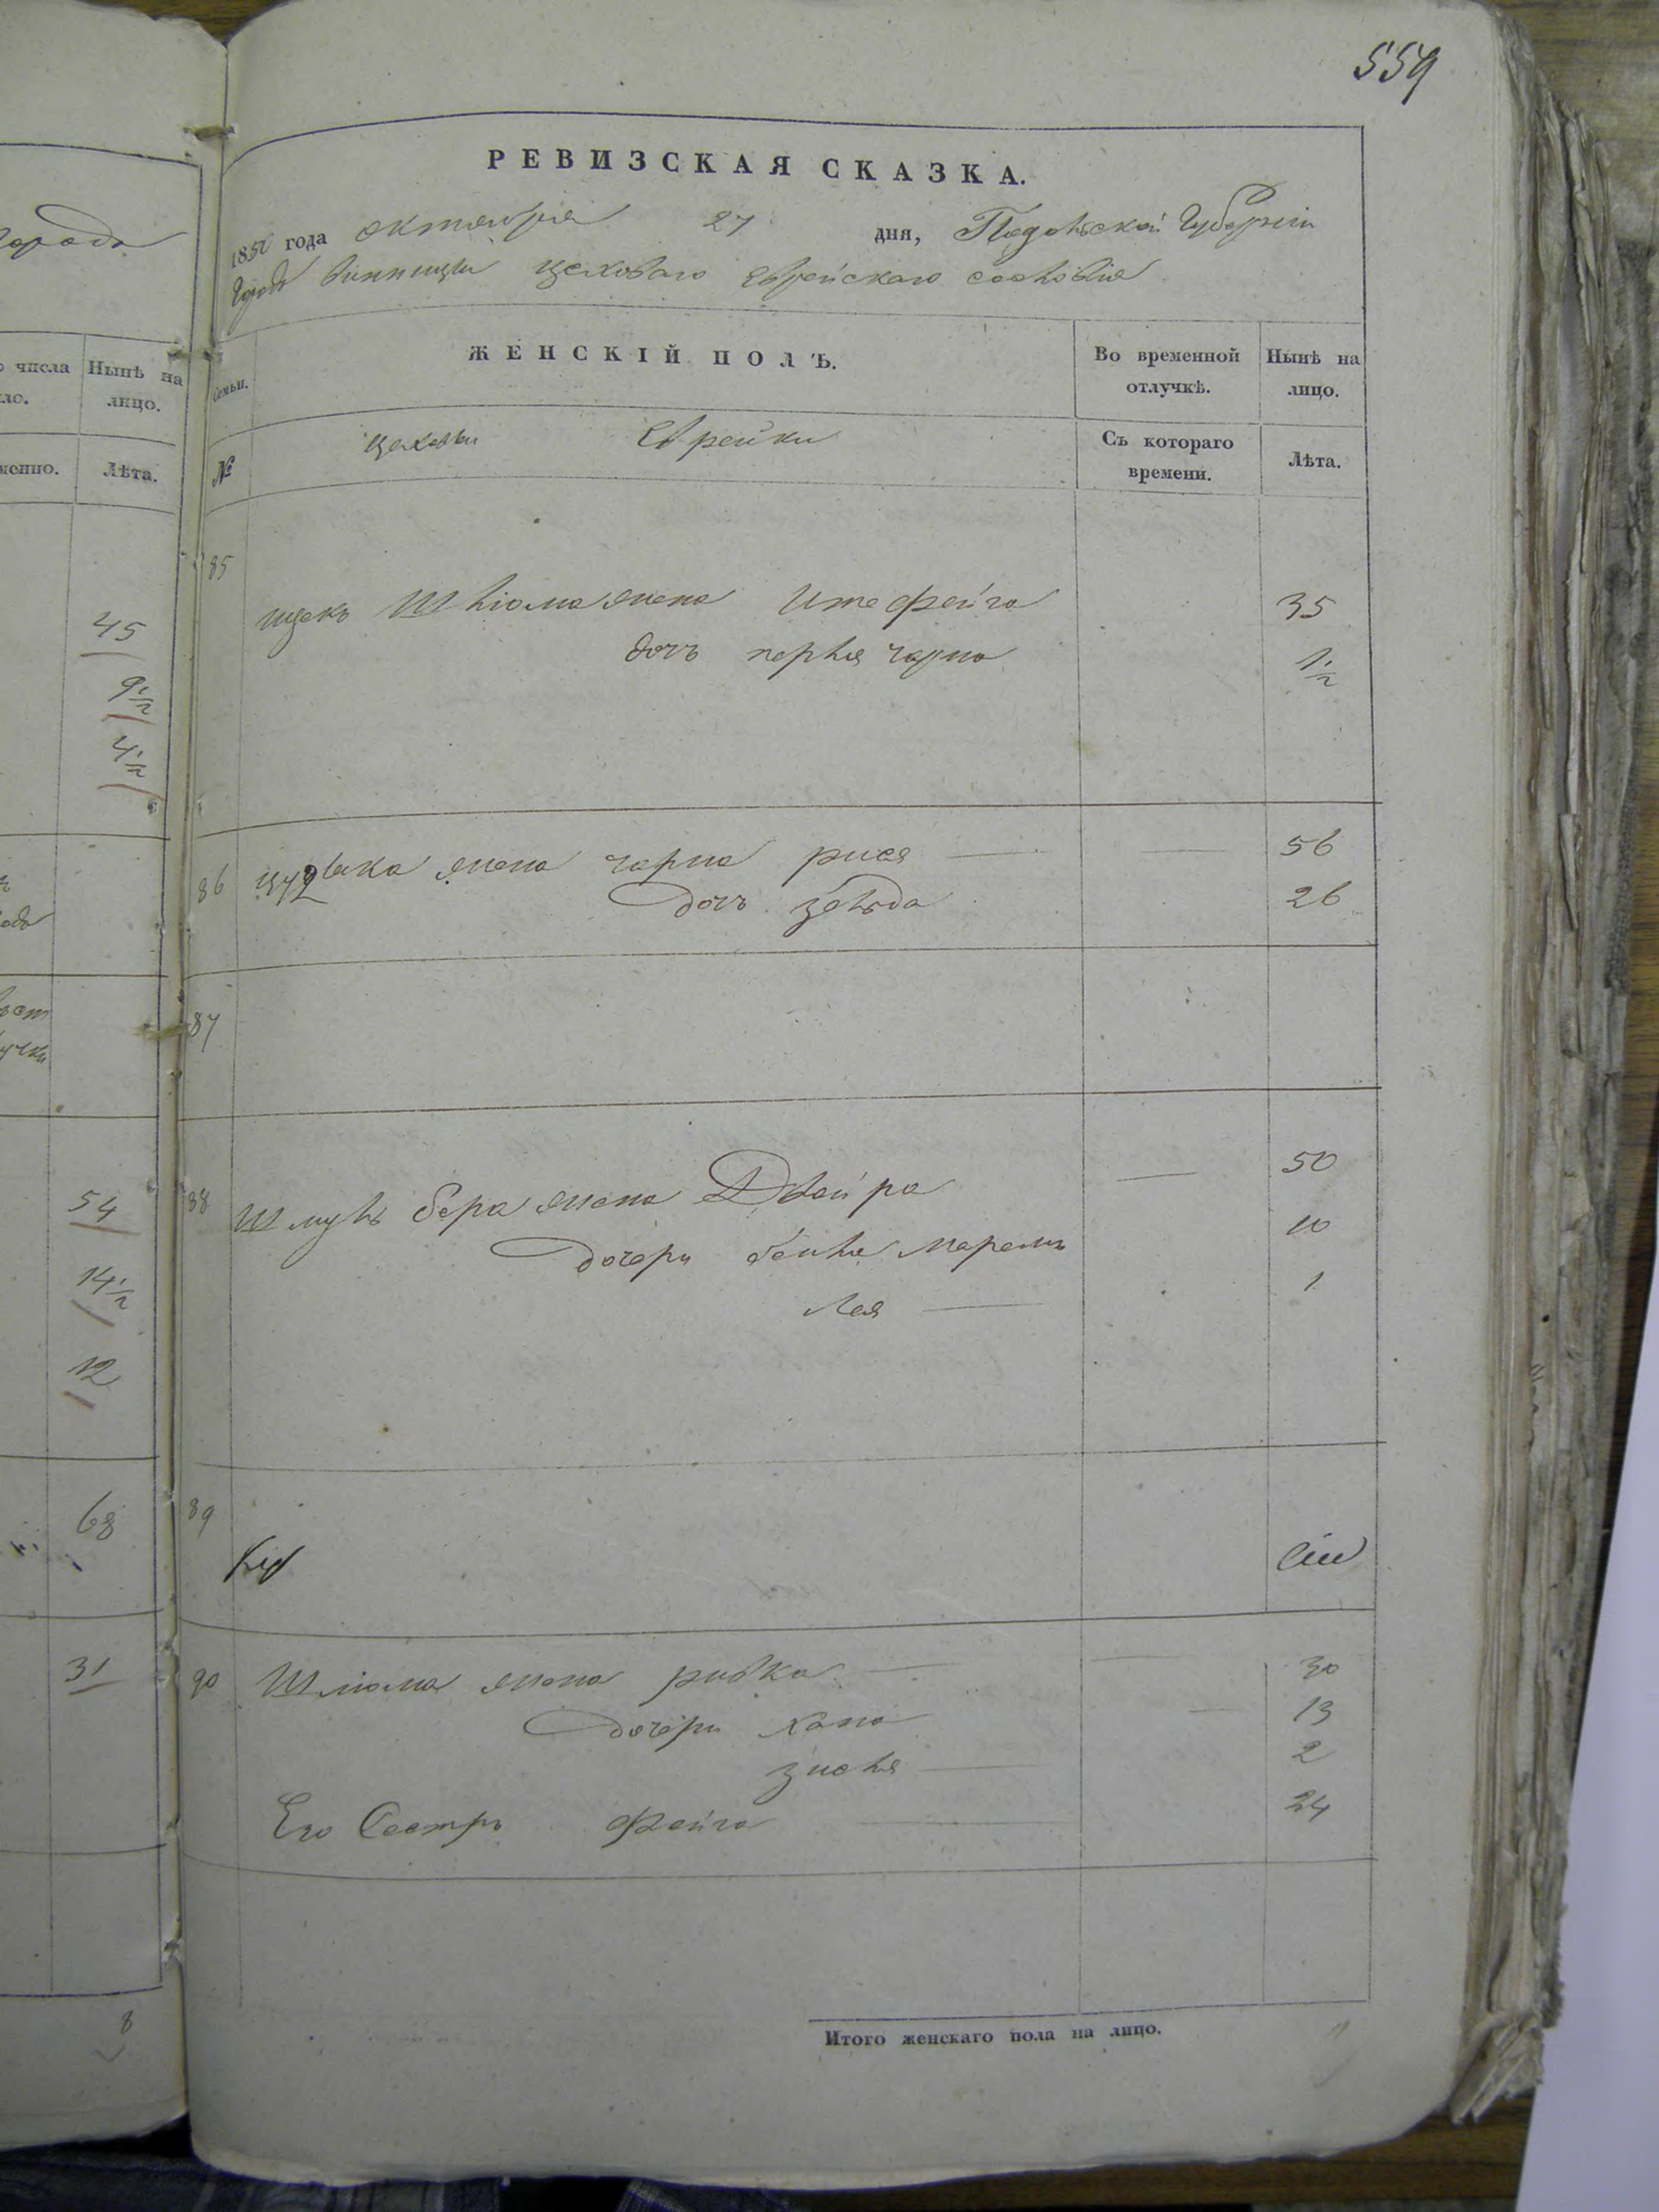 559
города
РЕВИЗСКАЯ СКАЗКА.
1850 года октября 27 дня, Подольской Губернии
Города Винницы цеховаго Еврейскаго сословия
числа
Нынѣ на лицо.
Семьи.
ЖЕНСКІЙ ПОЛЪ.
Во временной отлучкѣ.
Нынѣ на лицо.
Лѣта.
№
цеховы Еврейки
Съ котораго времени.
Лѣта.
85
45
9½
4½
Шліома жена Ите Фейга 35
дочь перля чарна 1½
86 жена чарна рися — — 56
дочь зельда 26
87
88
54
14½
12
Шмуль бера жена Двойра — 50
дочери бейля маремъ 10
Лея — 1
68
89
31
90 Шлиома жена ривка — — 30
дочери хана — 13
зисля — 2
Его Сестра Фейга — 24
8
Итого женскаго пола на лицо.